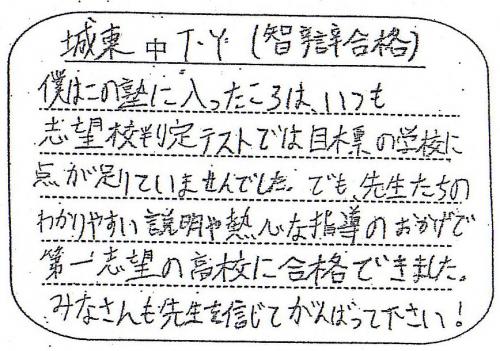 城東中 T.Y (智辯合格)
僕はこの塾に入ったころは、いつも
志望校判定テストでは目標の学校に
点が足りていませんでした。でも、先生たちの
わかりやすい説明や熱心な指導のおかげで
第一志望の高校に合格できました。
みなさんも先生を信じてがんばって下さい!